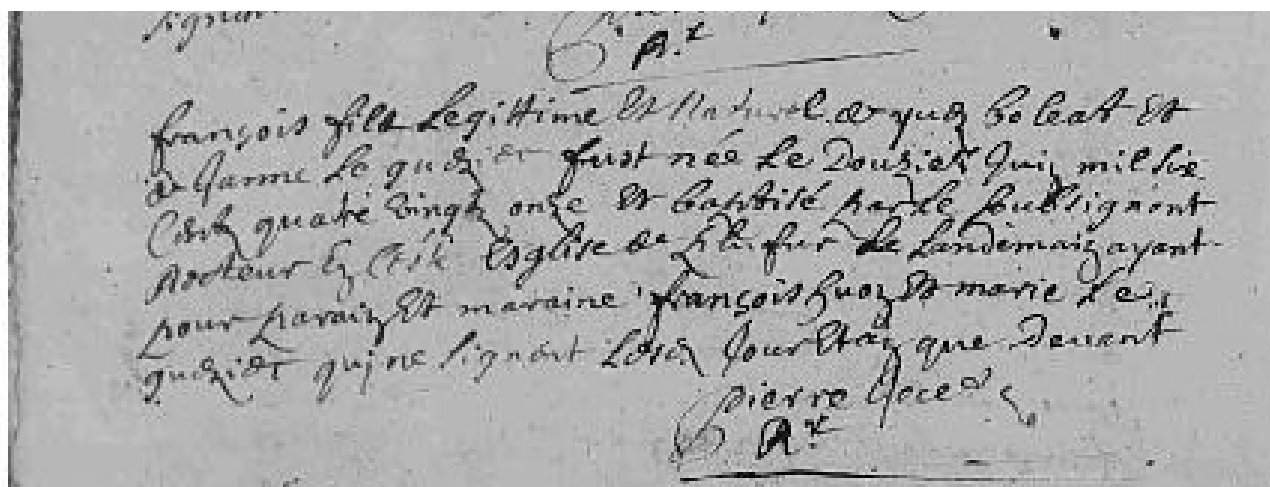 signa
Rr
françois fils Legittime Et Naturel de yuez boleat Et
de Janne Le guezier fust née Le Douzie Juin mil six
Cent quatre vingt onze Et baptisé par Le soubsignant
Recteur En Esglise de Le Landemain ayant
pour parain Et maraine françois huon Et marie Le
guezier qui ne signent Jour Et an que Devant
pierre
Rr